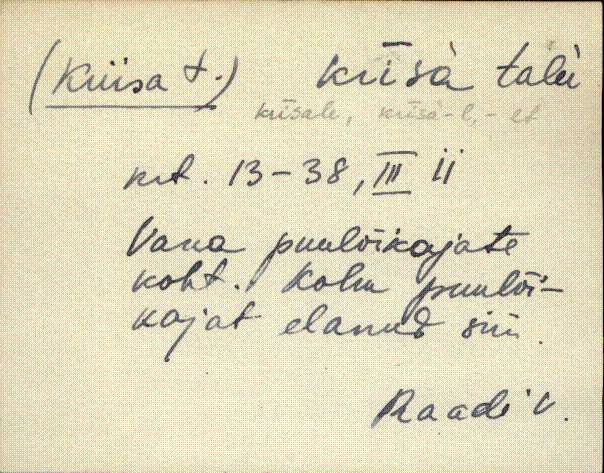 (Kiisa t.) kīsà talù
kīsàle, kīsà-l, - et
krt. 13-38, III ii
Vana puulõikajate
koht. Kolm puulõi-
kajat elanud siin.
Raadi v.